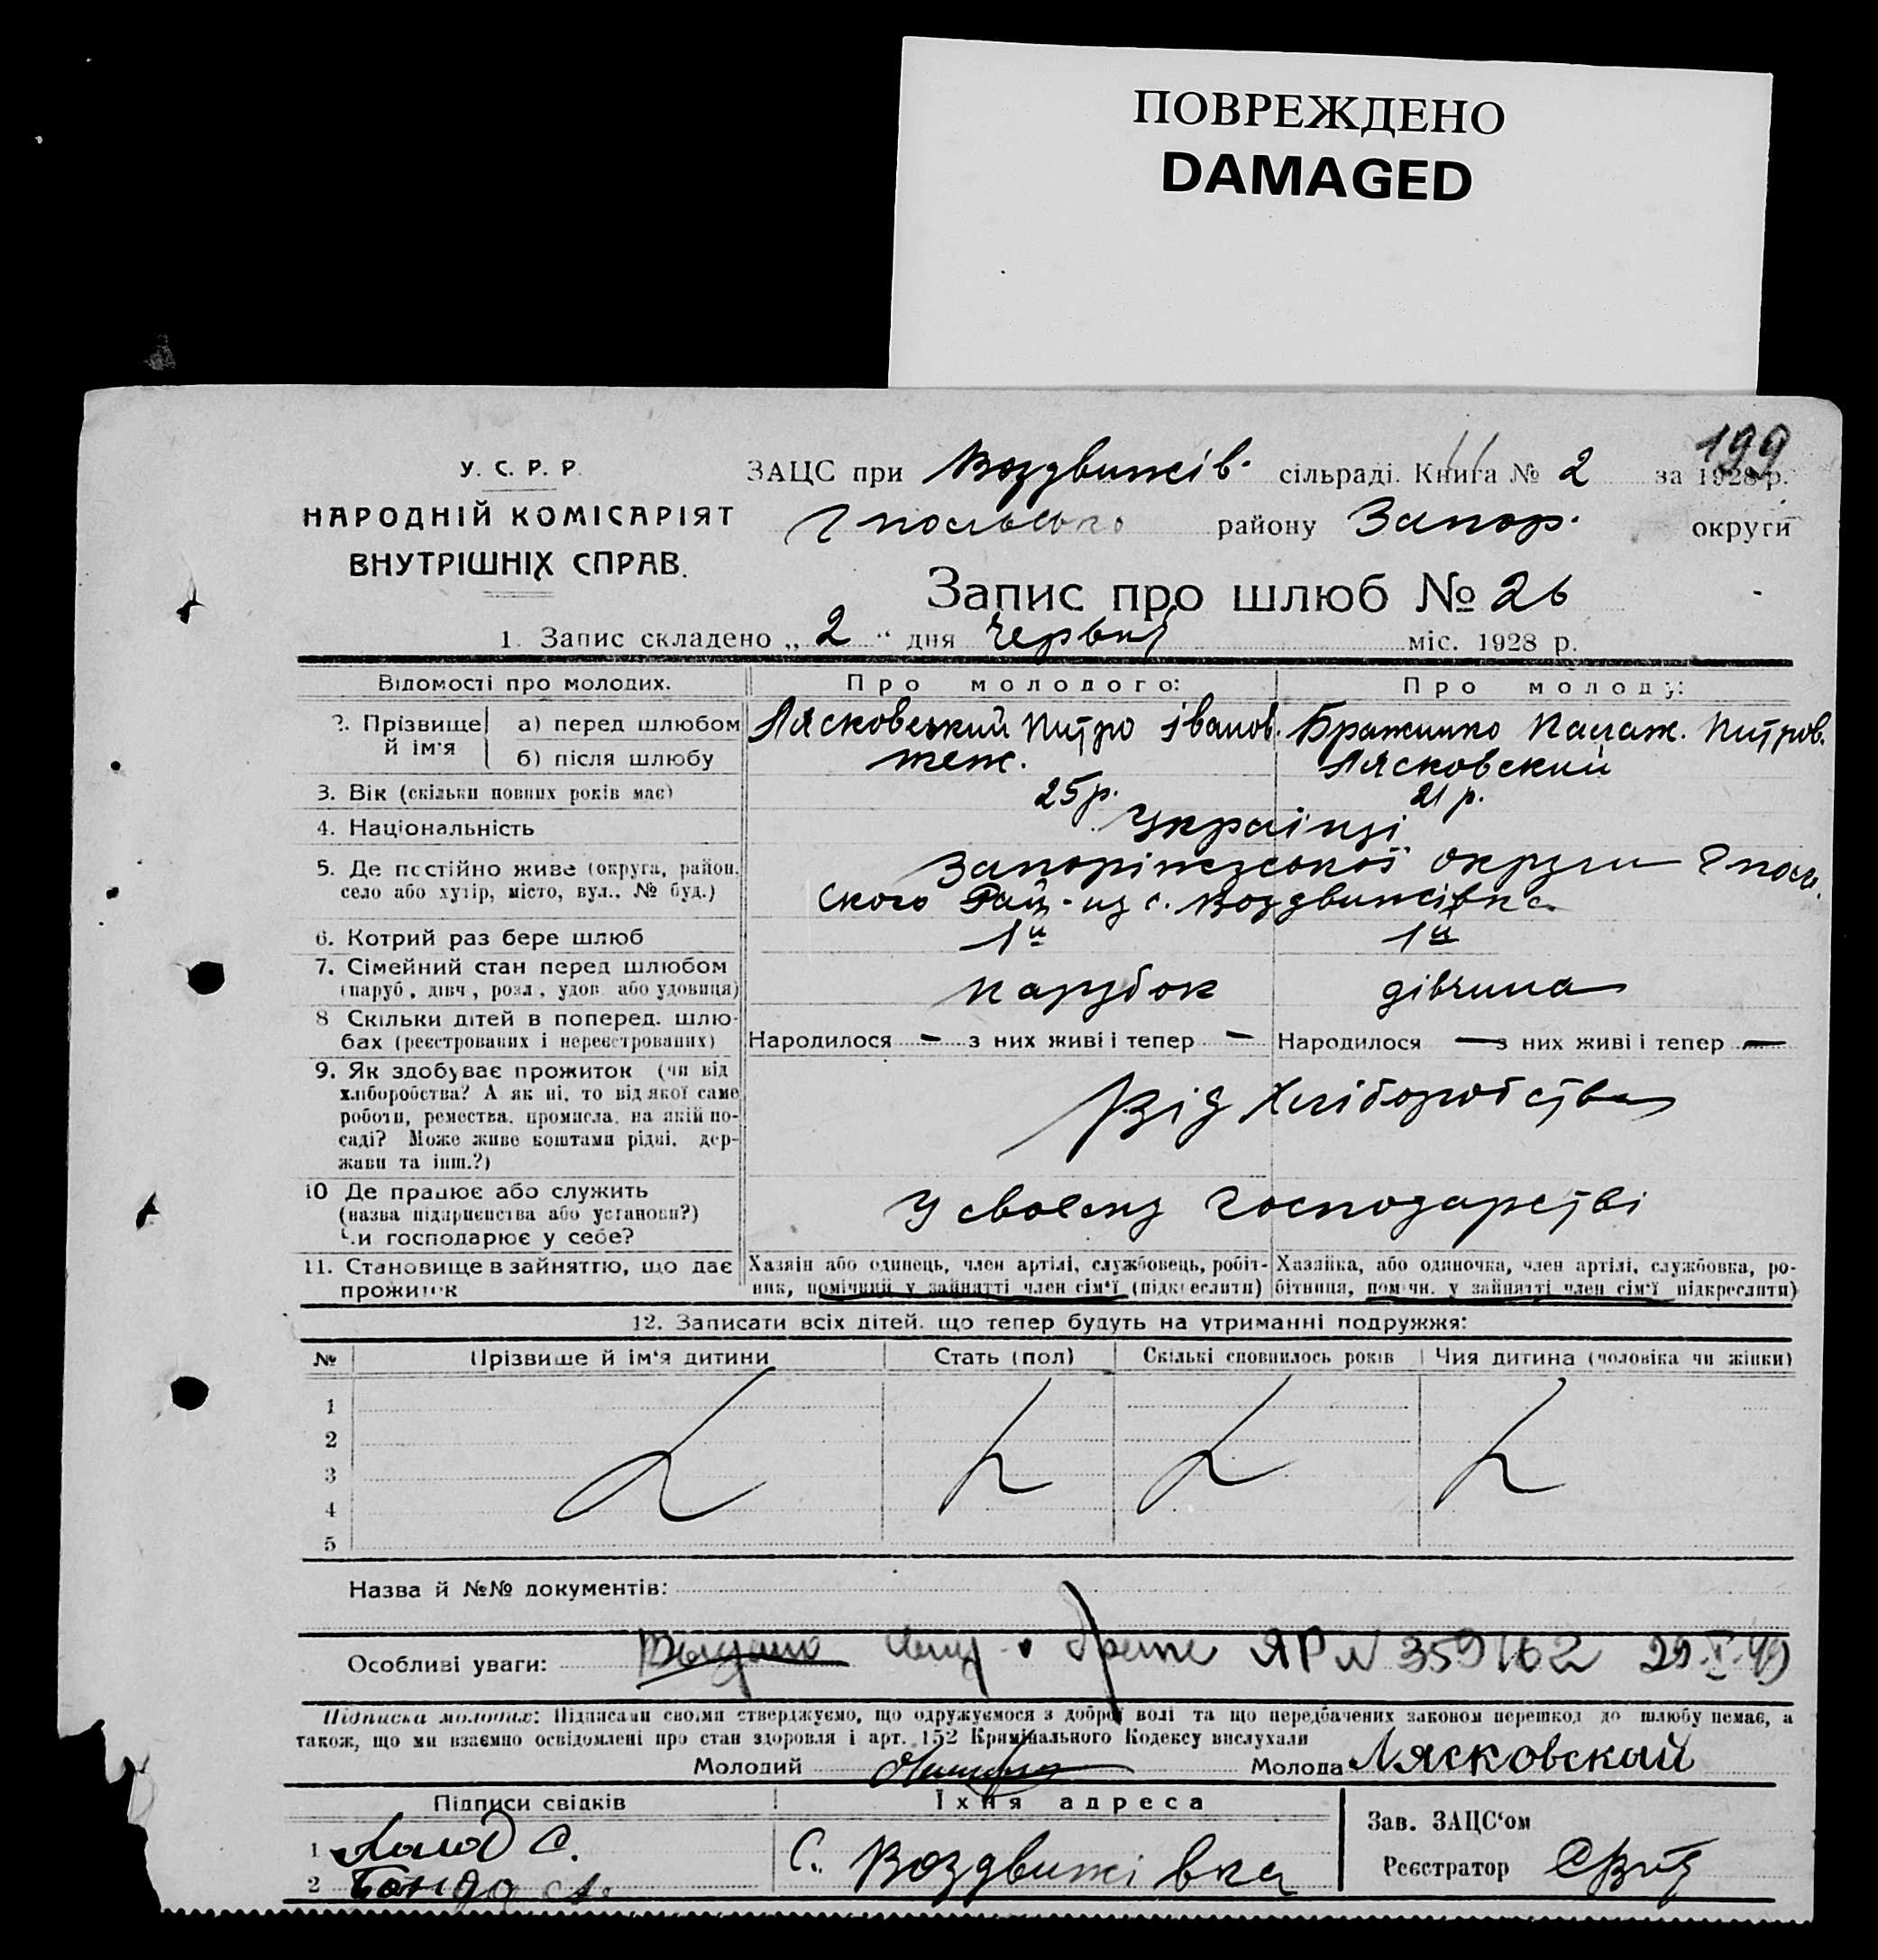 ПОВРЕЖДЕНО
DAMAGED
199
У. С. Р. Р.
НАРОДНІЙ КОМІСАРІЯТ
ВНУТРІШНІХ СПРАВ.
ЗАЦС при Воздвижів. сільраді. Книга № 2 за 1928 р.
Гпольського району Запор. округи
Запис про шлюб № 26
1. Запис складено „2“ дня червня міс. 1928 р.
Відомості про молодих. Про молодого: Про молоду:
2. Прізвище й ім'я а) перед шлюбом Лясковський Питро Іванов. Бражнико Палаж. Питров.
б) після шлюбу теж. Лясковский
3. Вік (скільки повних років має) 25 р. 21 р.
4. Національність Українці
5. Де постійно живе (округа, район, Запоріжської округи Гполь
село або хутір, місто, вул., № буд.) ского Рай. из с. Воздвижівка
6. Котрий раз бере шлюб 1й 1й
7. Сімейний стан перед шлюбом
(паруб., дівч., розл., удов. або удовиця) парубок дівчина
8 Скільки дітей в поперед. шлю-
бах (реєстрованих і нереєстрованих) Народилося — з них живі і тепер — Народилося — з них живі і тепер —
9. Як здобуває прожиток (чи від
хліборобства? А як ні, то від якої саме
роботи, ремества, промисла, на якій по-
саді? Може живе коштами рідні, дер-
жави та інш.?)
Від Хліборобства
10 Де працює або служить
(назва підприємства або установи?)
Чи господарює у себе?
У своєму господарстві
11. Становище в зайняттю, що дає
прожиток
Хазяін або одинець, член артілі, службовець, робіт-
ник, помічний у зайнятті член сім'ї (підкреслити)
Хазяйка, або одиночка, член артілі, службовка, ро-
бітниця, помічн. у зайнятті член сім'ї підкреслити)
12. Записати всіх дітей, що тепер будуть на утриманні подружжя:
№ Прізвище й ім'я дитини Стать (пол) Скількі сповнилось років Чия дитина (чоловіка чи жінки)
1
2
3
4
5
Назва й №№ документів:
Особливі уваги: Выдано ЯР № 359162 29.V.49
Підписка молодих: Підписами своїми стверджуємо, що одружуємося з доброї волі та що передбачених законом перешкод до шлюбу немає, а
також, що ми взаємно освідомлені про стан здоровля і арт. 152 Кримінального Кодексу вислухали
Молодий Молода Лясковскай
Підписи свідків Їхня адреса
1 С.
2
С. Воздвижівка
Зав. ЗАЦС'ом
Реєстратор